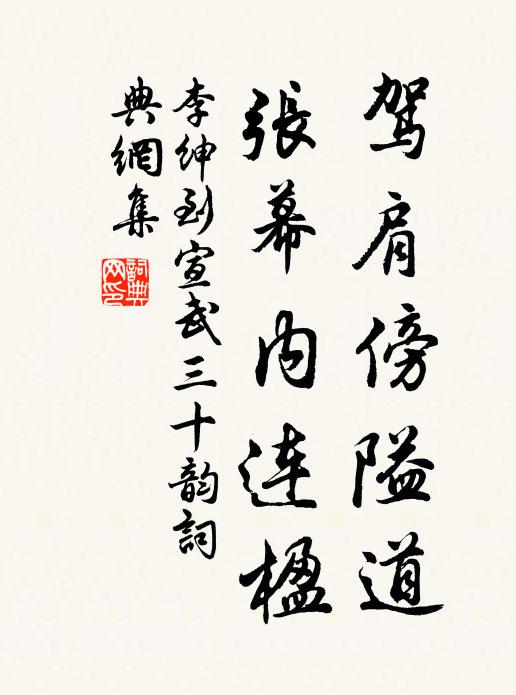 駕肩傍隘道
張幕內連楹
李紳到宣武三十韵詞
典網集
詞典
网印